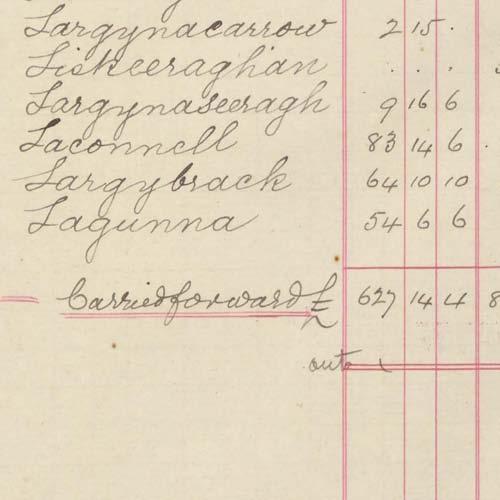 Largynacarrow 2 15 .
Liskeeraghan . . .
Largynaseeragh 9 16 6
Laconnell 83 14 6
Largybrack 64 10 10
Lagunna 54 6 6
Carried forward £ 627 14 4 8